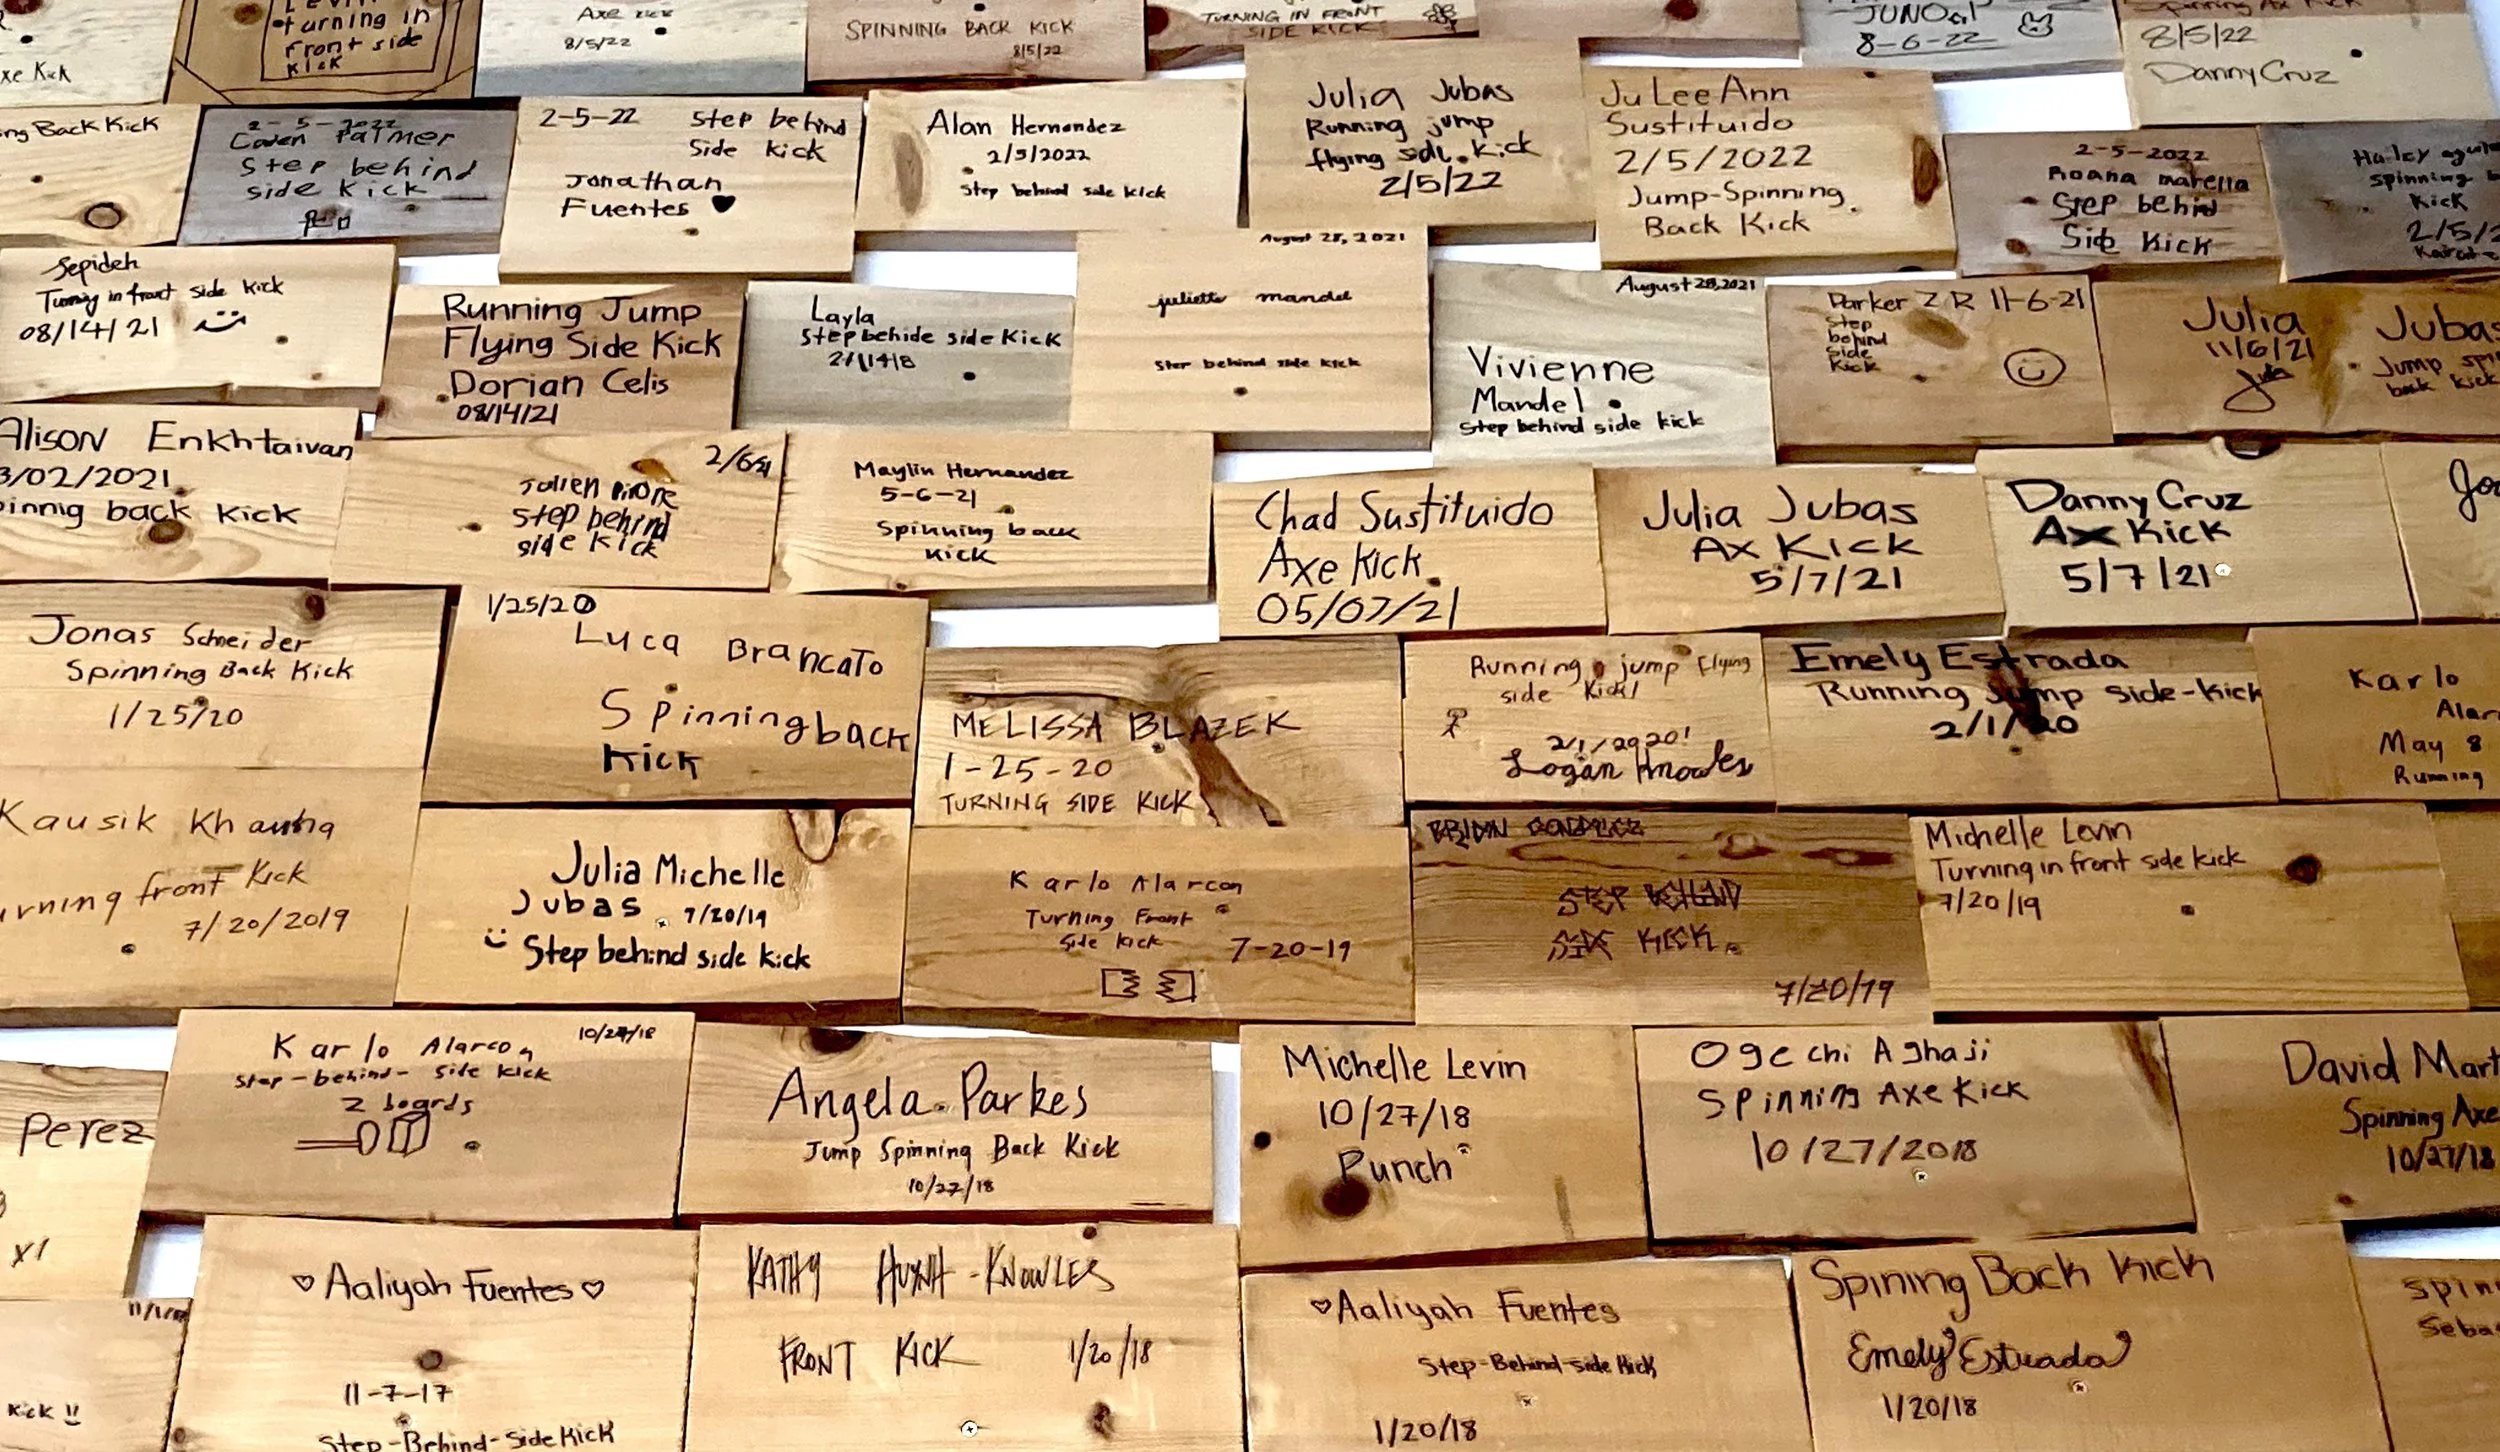 turning in
front side
kick
Axe Kick
8/5/22
SPINNING BACK KICK
8/5/22
TURNING IN FRONT
SIDE KICK
8-6-22
Spinning Ax Kick
8/5/22
Danny Cruz
xe Kick
ng Back Kick
2-5-2022
Palmer
Step behind
side kick
2-5-22 Step behind
side kick
Jonathan
Fuentes
Alan Hernandez
2/5/2022
Step behind side kick
Julia Jubas
Running jump
flying side kick
2/5/22
Ju Lee Ann
Sustituido
2/5/2022
Jump-Spinning
Back Kick
2-5-2022
Step behind
Side Kick
spinning b
Kick
2/5/2
Sepideh
Turning in front side kick
08/14/21
Running Jump
Flying Side Kick
Dorian Celis
08/14/21
Layla
Step behide side Kick
August 28, 2021
juliette mandel
Step behind side kick
August 28, 2021
Vivienne
Mandel
Step behind side kick
Parker Z R 11-6-21
Step
behind
side
kick
Julia Jubas
11/6/21
Jump spi
back kick
Alison Enkhtaivan
3/02/2021
innig back kick
2/6/21
step behind
side kick
Maylin Hernandez
5-6-21
Spinning back
kick
Chad Sustituido
Axe Kick
05/07/21
Julia Jubas
Ax Kick
5/7/21
Danny Cruz
Ax Kick
5/7/21
Jonas Schneider
Spinning Back Kick
1/25/20
1/25/20
Luca Brancato
Spinning back
kick
MELISSA BLAZEK
1-25-20
TURNING SIDE KICK
Running jump Flying
side kick!
2/1/2020!
Logan Knowles
Emely Estrada
Running Jump side-kick
2/1/20
Karlo
Alar
May 8
Running
Kausik Khauna
urning front Kick
7/20/2019
Julia Michelle
Jubas 7/20/19
Step behind side kick
Karlo Alarcon
Turning Front
side kick 7-20-19
STEP BEHIND
SIDE KICK
7/20/19
Michelle Levin
Turning in front side kick
7/20/19
Perez
x1
Karlo Alarcon 10/27/18
Step-behind- side kick
2 boards
Angela Parkes
Jump Spinning Back Kick
10/27/18
Michelle Levin
10/27/18
Punch
Ogechi Aghaji
Spinning Axe Kick
10/27/2018
David Mart
Spinning Axe
10/27/18
kick !!
Aaliyah Fuentes
11-7-17
Step-Behind-Side Kick
KATHY HUYNH-KNOWLES
FRONT KICK 1/20/18
Aaliyah Fuentes
Step-Behind-side Kick
1/20/18
Spining Back Kick
Emely Estrada
1/20/18
Spinn
Seba